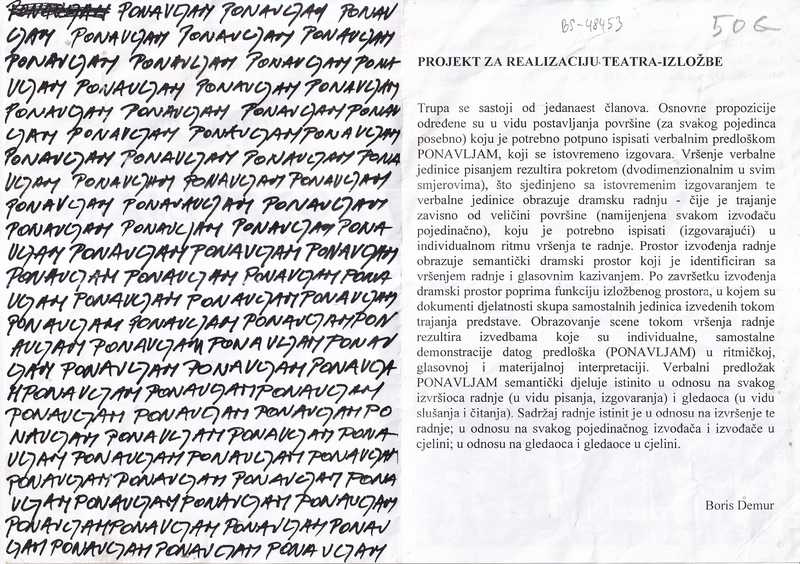 PONAVLJAM PONAVLJAM PONAVLJAM PONAV
LJAM PONAVLJAM PONAVLJAM PONAVLJAM
PONAVLJAM PONAVLJAM PONAVLJAM PONA
VLJAM PONAVLJAM PONAVLJAM PONAVLJAM
PONAVLJAM PONAVLJAM PONAVLJAM PONAV
LJAM PONAVLJAM PONAVLJAM PONAVLJAM
PONAVLJAM PONAVLJAM PONAVLJAM PONA
VLJAM PONAVLJAM PONAVLJAM PONAVLJAM
PONAVLJAM PONAVLJAM PONAVLJAM
PONAVLJAM PONAVLJAM PONAVLJAM PONA
VLJAM PONAVLJAM PONAVLJAM PONAVLJAM
PONAVLJAM PONAVLJAM PONAVLJAM PONA
VLJAM PONAVLJAM PONAVLJAM PONAVLJAM
PONAVLJAM PONAVLJAM PONAVLJAM PON
AVLJAM PONAVLJAM PONAVLJAM PONAV
LJAM PONAVLJAM PONAVLJAM PONAVLJA
M PONAVLJAM PONAVLJAM PONAVLJAM
PONAVLJAM PONAVLJAM PONAVLJAM PO
NAVLJAM PONAVLJAM PONAVLJAM PONA
VLJAM PONAVLJAM PONAVLJAM PONAVLJAM
PONAVLJAM PONAVLJAM PONAVLJAM PONA
VLJAM PONAVLJAM PONAVLJAM PONAVLJAM
PONAVLJAM PONAVLJAM PONAVLJAM PONAV
LJAM PONAVLJAM PONAVLJAM PONAVLJAM
BS-48453
50G
PROJEKT ZA REALIZACIJU TEATRA-IZLOŽBE
Trupa se sastoji od jedanaest članova. Osnovne propozicije
određene su u vidu postavljanja površine (za svakog pojedinca
posebno) koju je potrebno potpuno ispisati verbalnim predloškom
PONAVLJAM, koji se istovremeno izgovara. Vršenje verbalne
jedinice pisanjem rezultira pokretom (dvodimenzionalnim u svim
smjerovima), što sjedinjeno sa istovremenim izgovaranjem te
verbalne jedinice obrazuje dramsku radnju - čije je trajanje
zavisno od veličini površine (namijenjena svakom izvođaču
pojedinačno), koju je potrebno ispisati (izgovarajući) u
individualnom ritmu vršenja te radnje. Prostor izvođenja radnje
obrazuje semantički dramski prostor koji je identificiran sa
vršenjem radnje i glasovnim kazivanjem. Po završetku izvođenja
dramski prostor poprima funkciju izložbenog prostora, u kojem su
dokumenti djelatnosti skupa samostalnih jedinica izvedenih tokom
trajanja predstave. Obrazovanje scene tokom vršenja radnje
rezultira izvedbama koje su individualne, samostalne
demonstracije datog predloška (PONAVLJAM) u ritmičkoj,
glasovnoj i materijalnoj interpretaciji. Verbalni predložak
PONAVLJAM semantički djeluje istinito u odnosu na svakog
izvršioca radnje (u vidu pisanja, izgovaranja) i gledaoca (u vidu
slušanja i čitanja). Sadržaj radnje istinit je u odnosu na izvršenje te
radnje; u odnosu na svakog pojedinačnog izvođača i izvođače u
cjelini; u odnosu na gledaoca i gledaoce u cjelini.
Boris Demur